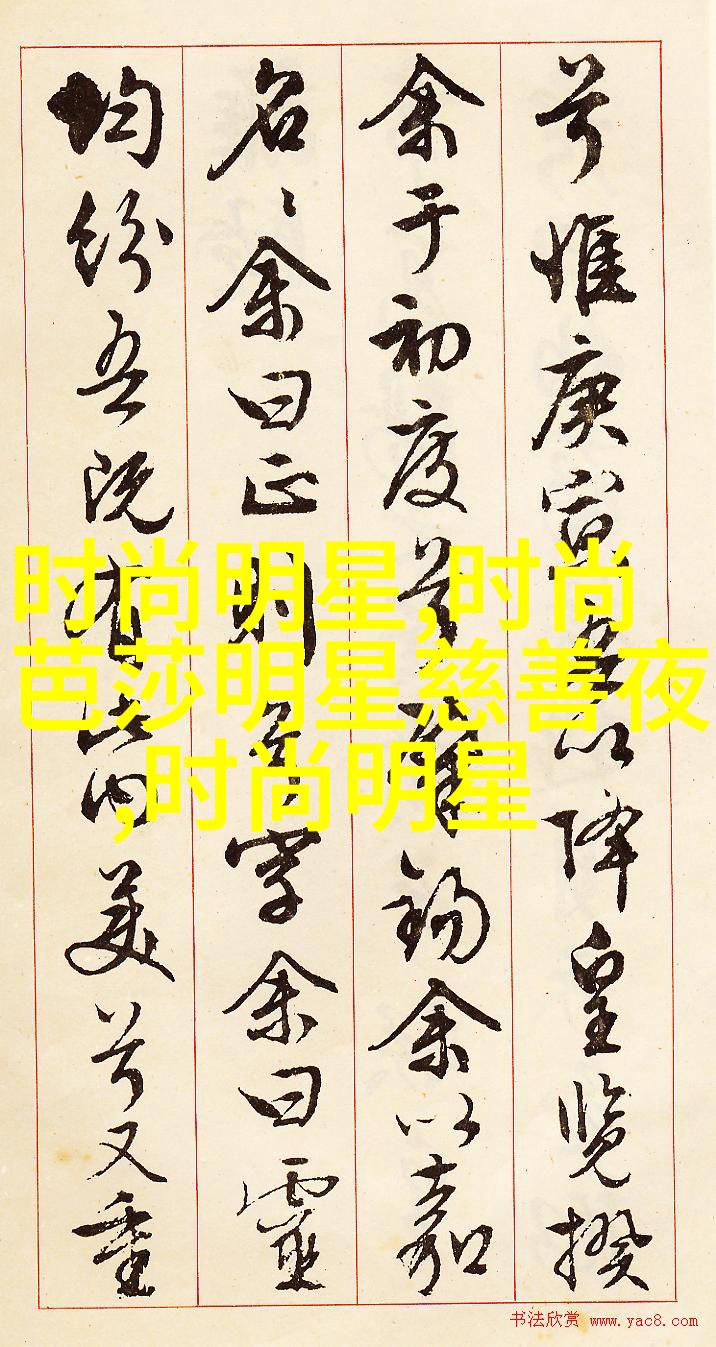 兮惟庚寅吾以降皇览揆
余于初度兮肇錫余以嘉
名々余曰正則兮字余曰靈
均紛吾既有此内美兮又重
时尚明星,时尚
芭莎明星慈善夜
,时尚明星
书法欣赏 www.yac8.com